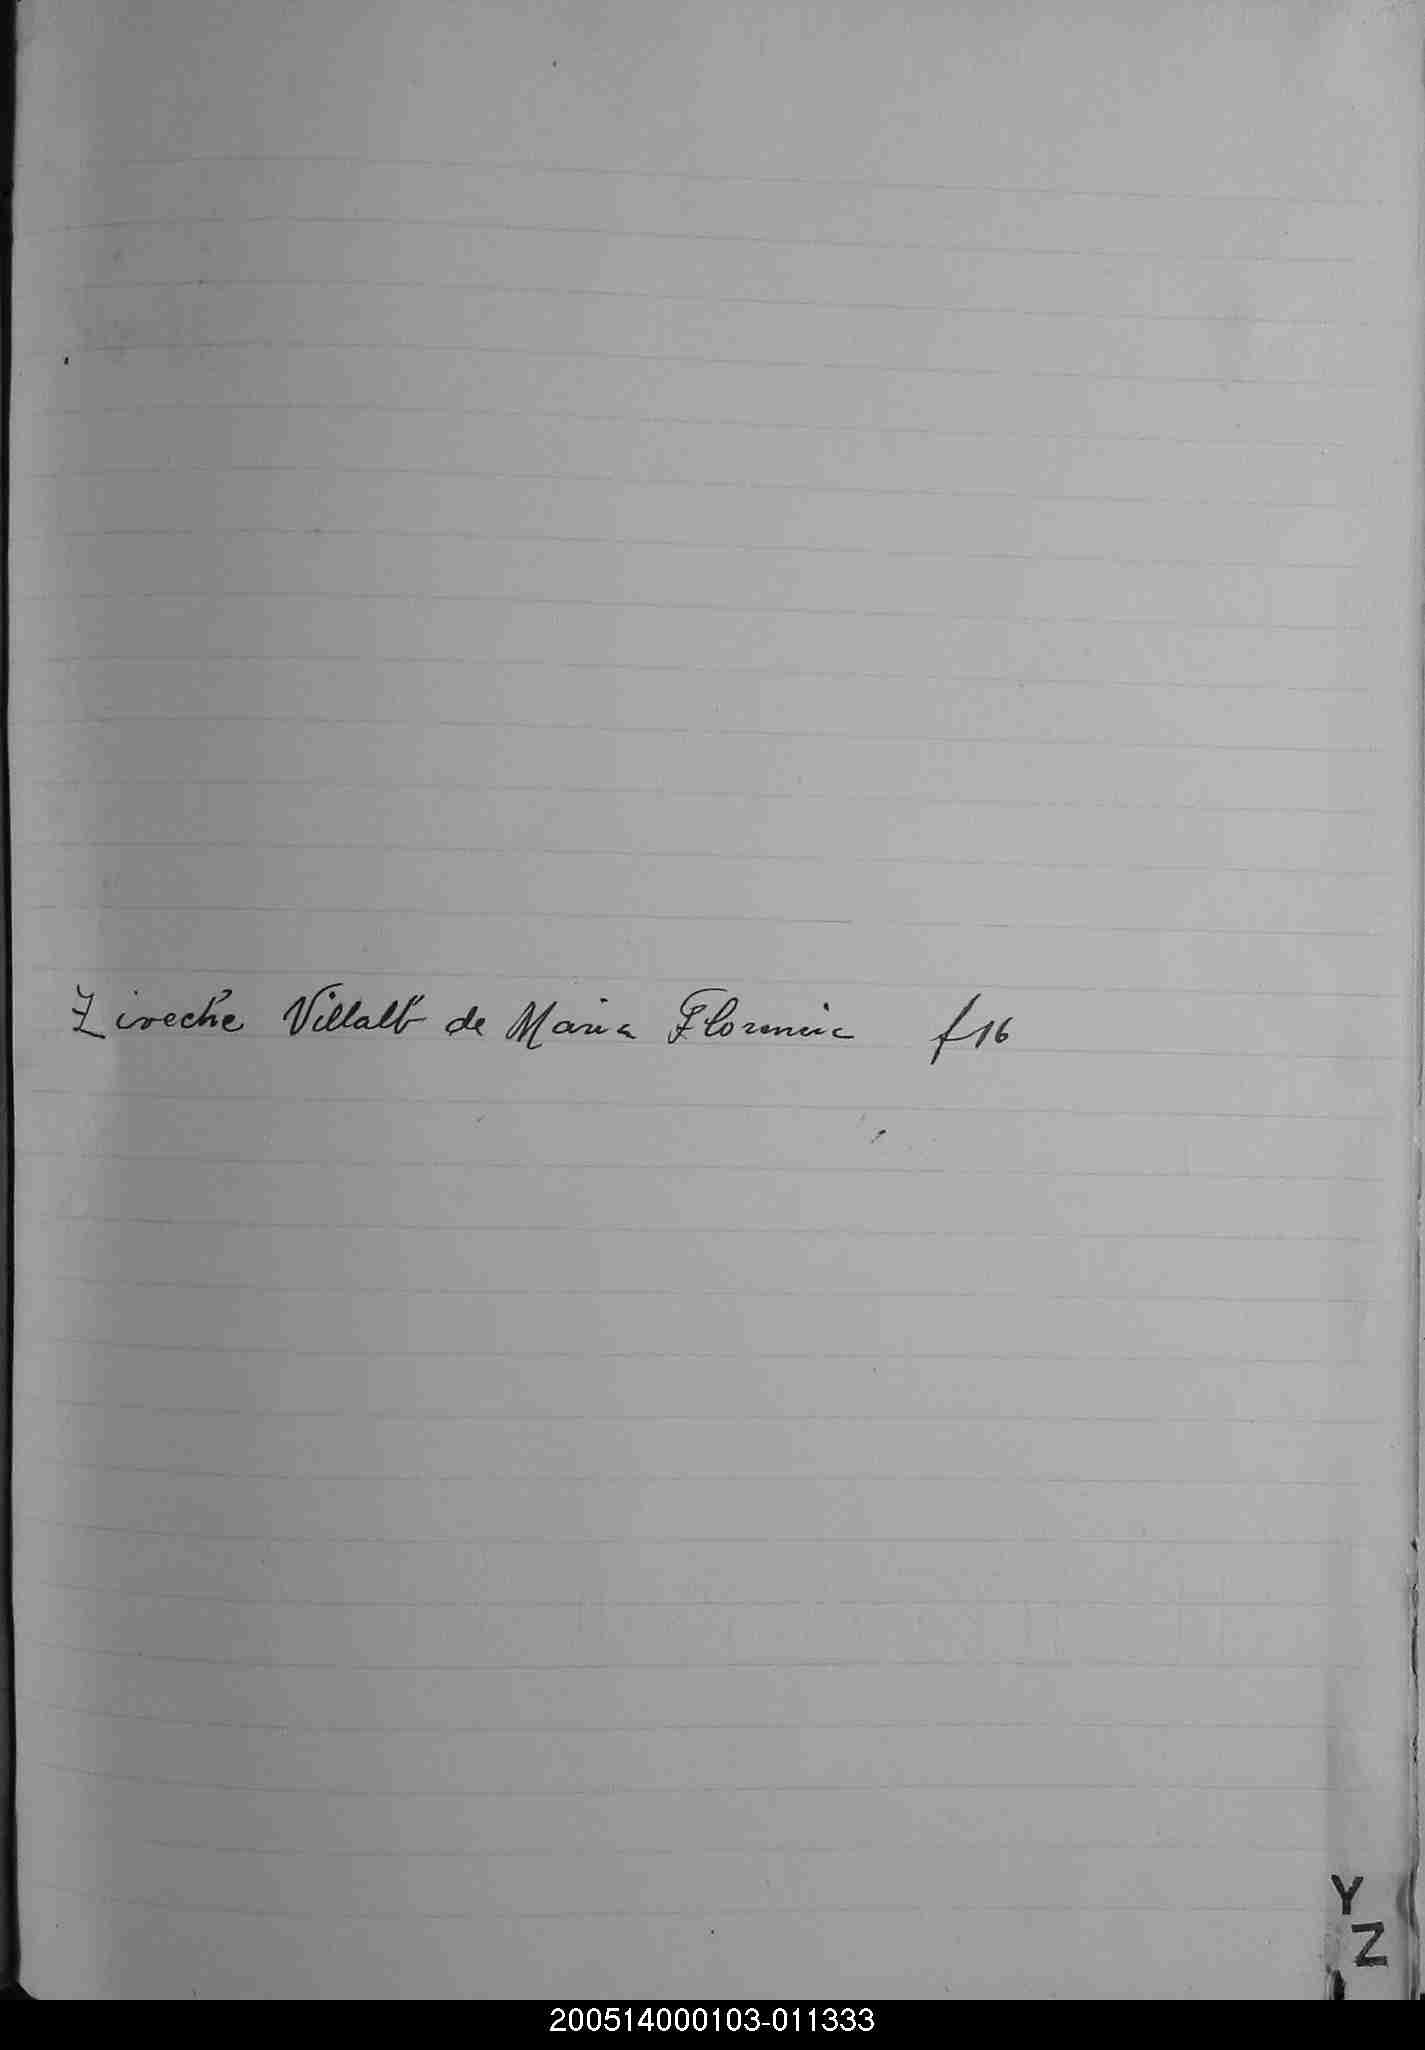 Zireche Villalb de Maria Florencia f 16
Y
Z
200514000103-011333